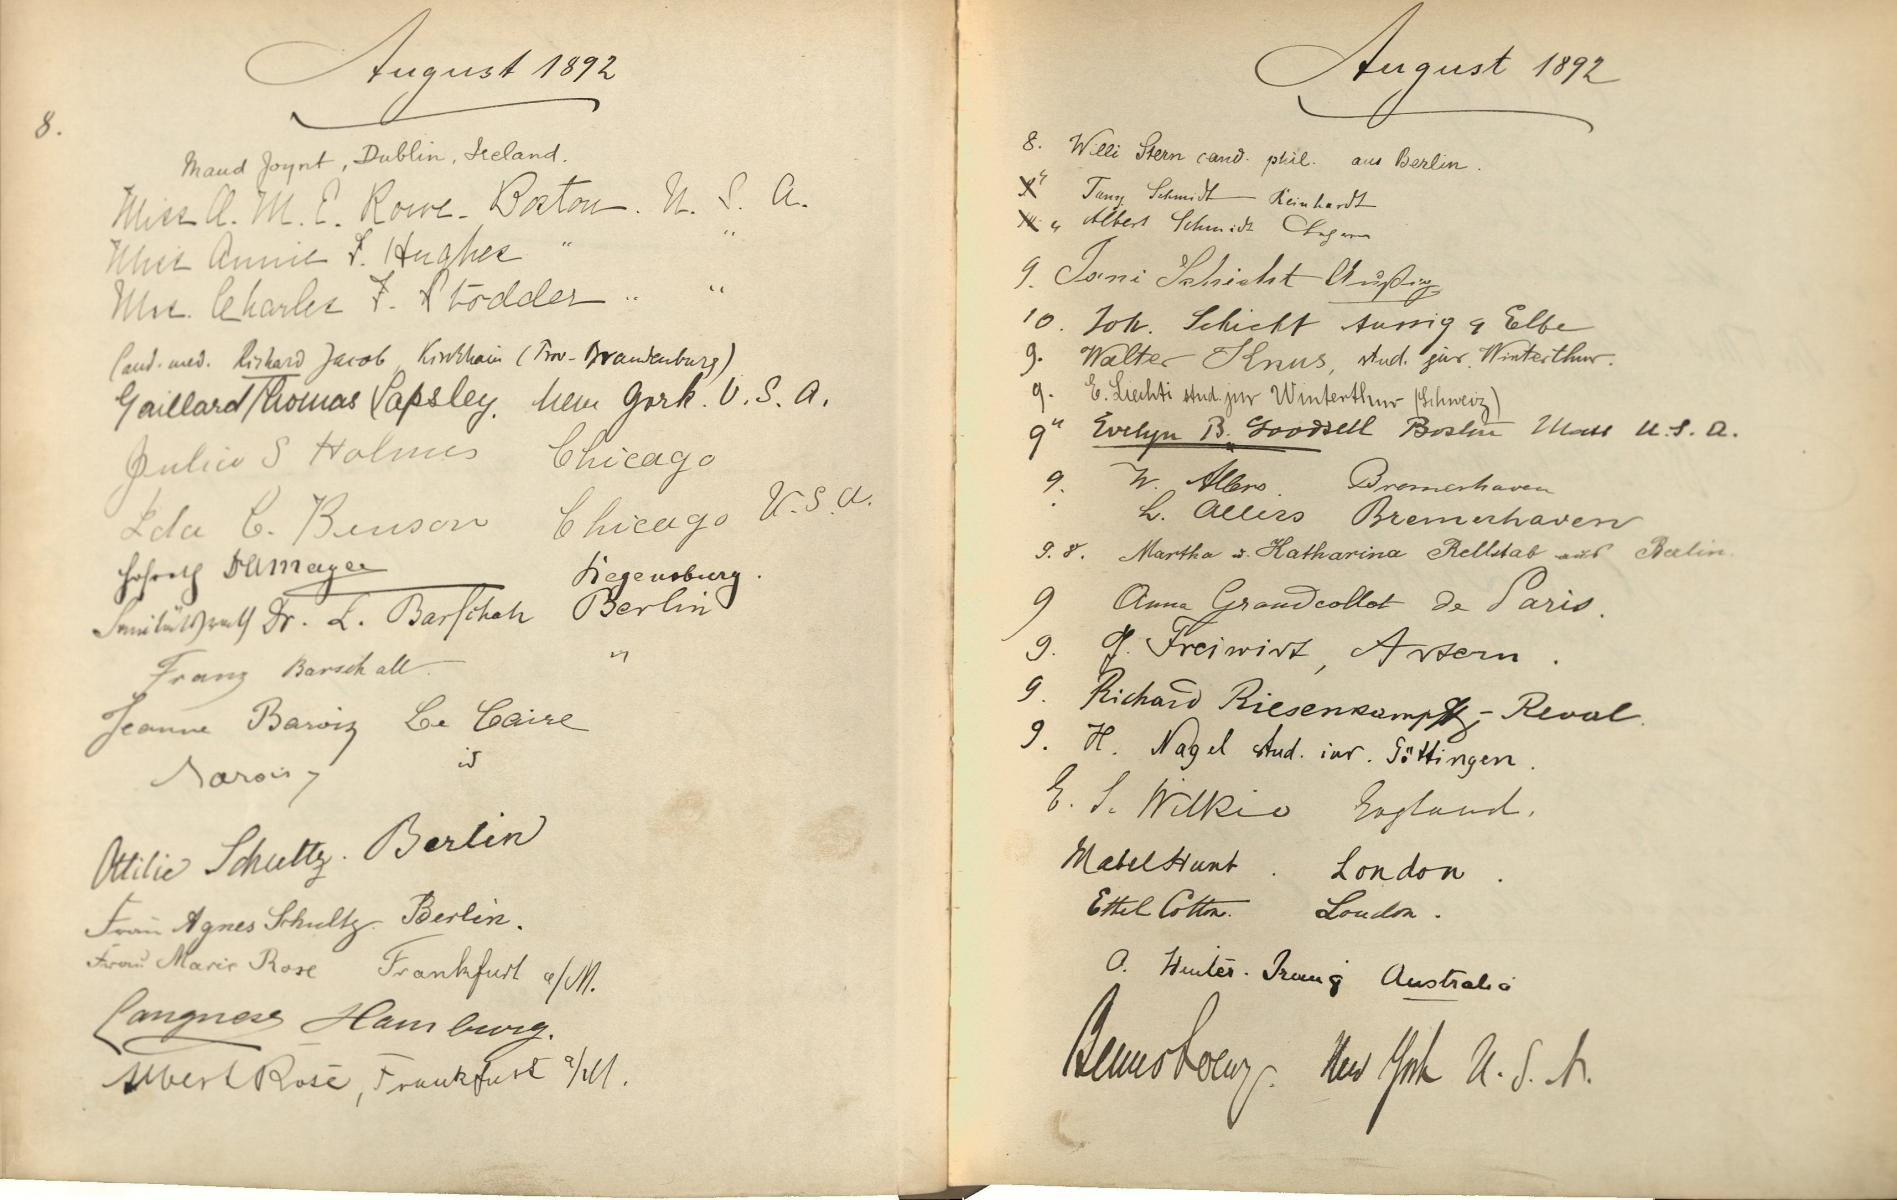 August 1892
8.
Maud Joynt, Dublin, Ireland.
Miss A. M. E. Rowe - Boston. U. S. A.
Miss Annie F. Hughes " "
Mrs. Charles F. Stodder " "
Cand. med. Richard Jacob, Kirchhain (Prov. Brandenburg)
Gaillard Thomas Lapsley. New York. U. S. A.
Julia S Holmes Chicago
Ida C. Benson Chicago U. S. A.
Hofrath Regensburg.
Sanitätsrath Dr. L. Barschall Berlin
Franz Barschall "
Jeanne Barois Le Caire
Barois id
Ottilie Schultz. Berlin
Frau Agnes Schultz. Berlin.
Frau Marie Rose Frankfurt a/M.
Langnese Hamburg.
Albert Rose, Frankfurt a/M.
August 1892
8. Willi Stern cand. phil. aus Berlin.
" Schmidt Reinhardt
" Albert Schmidt
9. Toni Schicht Außig
10. Joh. Schicht Aussig a Elbe
9. Walter Knus, stud. jur. Winterthur.
9. E. Liechti stud. jur Winterthur (Schweiz)
9" Evelyn B. Goodsell Boston Mass U. S. A.
9. W. Allers. Bremerhaven
L. Allers Bremerhaven
9. 8. Martha u. Katharina Rellstab aus Berlin.
9 Anna Grandcollot de Paris.
9. Freiwirt, Artern.
9. Richard Riesenkampff - Reval.
9. H. Nagel stud. iur. Göttingen.
E. S. Wilkie England.
Mabel Hunt. London.
Ethel Cotton. London.
Australia
New York U. S. A.